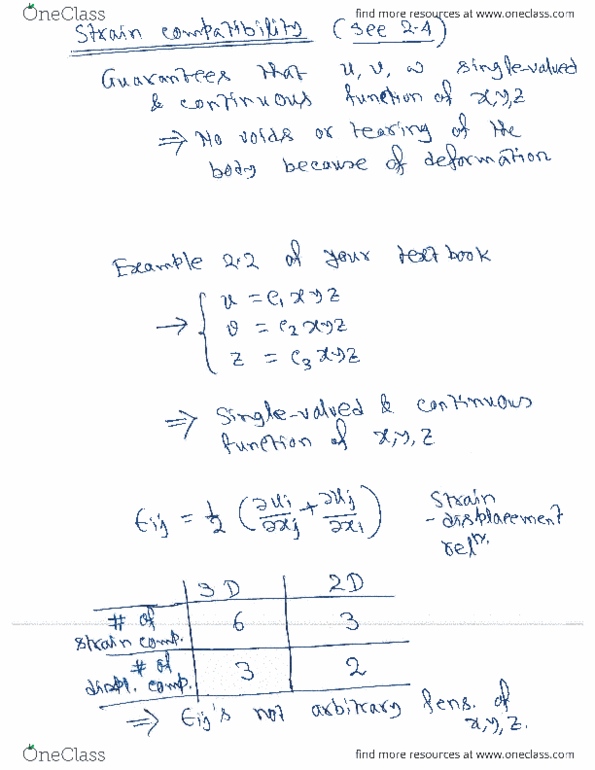 OneClass
find more resources at www.oneclass.com
Strain compatibility (see 2-4)
Guarantees that u, v, w single-valued
& continuous function of x,y,z
⇒ No voids or tearing of the
body because of deformation
Example 2.2 of your textbook
→ { u = c₁xyz
v = c₂xyz
z = c₃xyz
⇒ Single-valued & continuous
function of x,y,z
εij = 1/2 (∂ui/∂xj + ∂uj/∂xi) Strain
- displacement
relⁿ.
3D 2D
# of strain comp. 6 3
# of displ. comp. 3 2
⇒ εij's not arbitrary fens. of
x,y,z.
OneClass
find more resources at www.oneclass.com